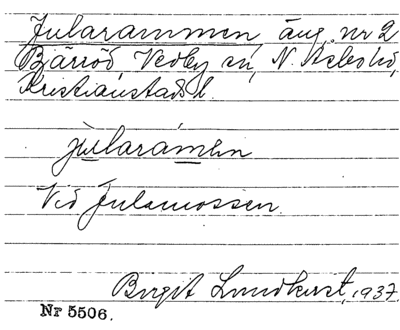 Jularammen, äng, nr 2
Bärröd Vedby sn, N. Åsbo hd,
Kristianstads l.
jularámen
Vid Julamossen.
Birgit Lundkvist, 1937.
Nr 5506.